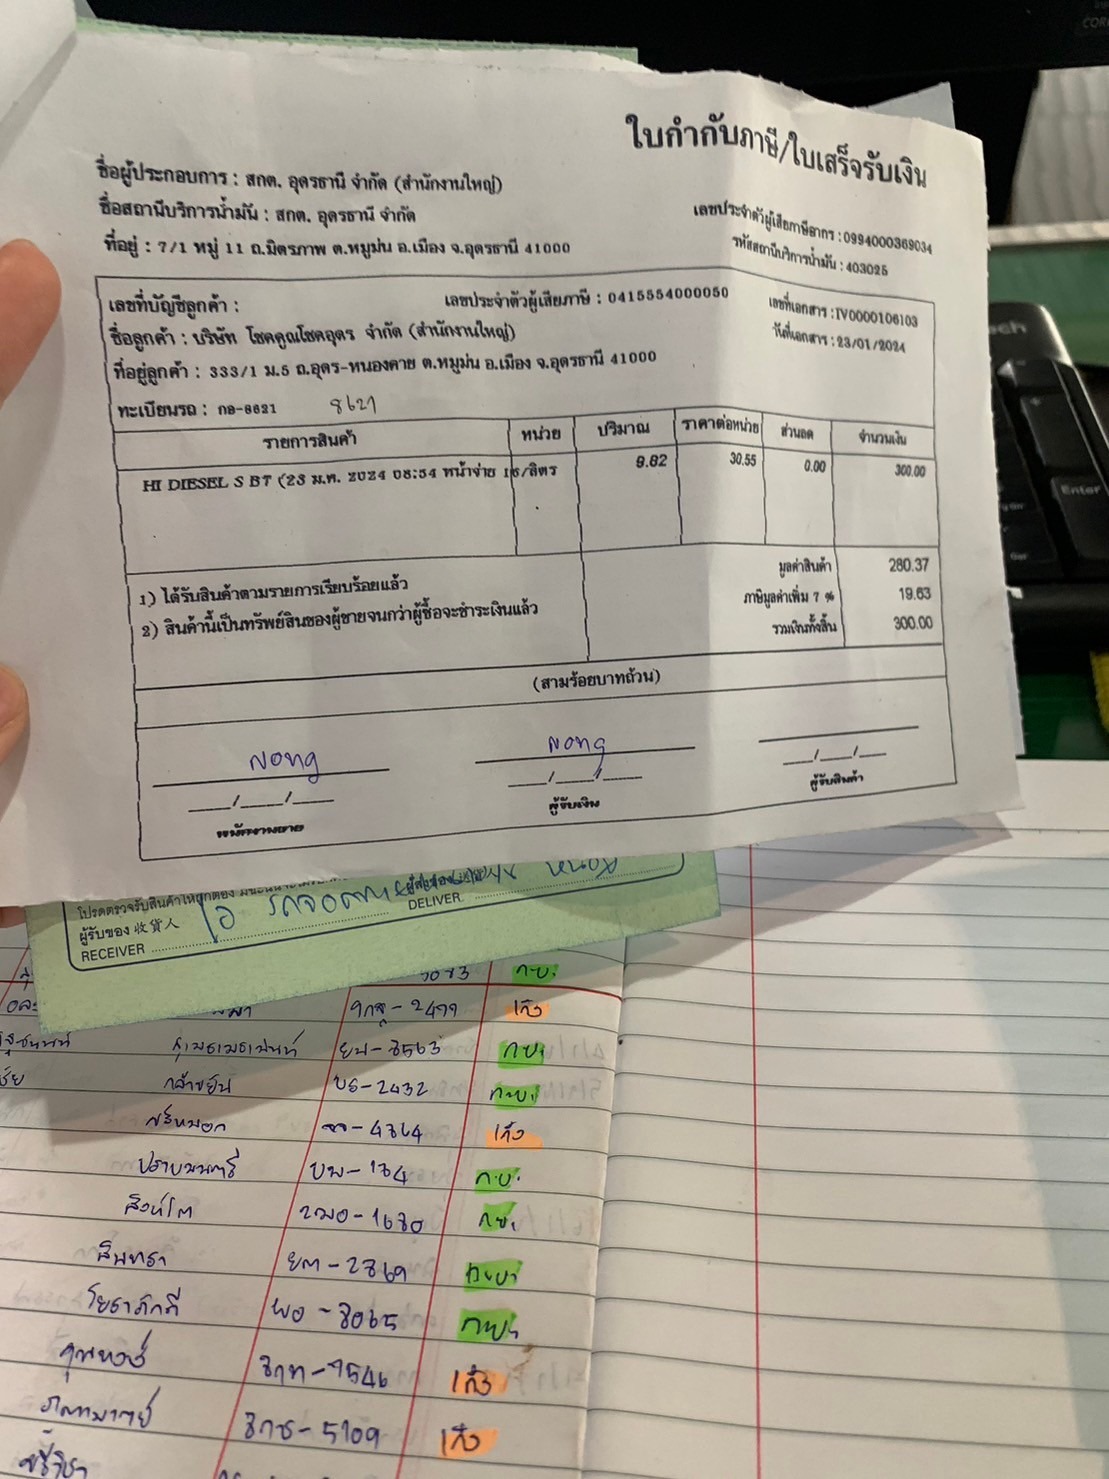 ใบกำกับภาษี/ใบเสร็จรับเงิน
ชื่อผู้ประกอบการ : สกต. อุดรธานี จำกัด (สำนักงานใหญ่)
เลขประจำตัวผู้เสียภาษีอากร : 0994000369034
ชื่อสถานีบริการน้ำมัน : สกต. อุดรธานี จำกัด
รหัสสถานีบริการน้ำมัน : 403025
ที่อยู่ : 7/1 หมู่ 11 ถ.มิตรภาพ ต.หมูม่น อ.เมือง จ.อุดรธานี 41000
เลขที่บัญชีลูกค้า : เลขประจำตัวผู้เสียภาษี : 0415554000050 เลขที่เอกสาร : IV0000106103
ชื่อลูกค้า : บริษัท โชคคูณโชคอุดร จำกัด (สำนักงานใหญ่) วันที่เอกสาร : 23/01/2024
ที่อยู่ลูกค้า : 333/1 ม.5 ถ.อุดร-หนองคาย ต.หมูม่น อ.เมือง จ.อุดรธานี 41000
ทะเบียนรถ : กอ-8621 8621
รายการสินค้า หน่วย ปริมาณ ราคาต่อหน่วย ส่วนลด จำนวนเงิน
HI DIESEL S B7 (23 ม.ค. 2024 08:54 หน้าจ่าย 16/ลิตร 9.82 30.55 0.00 300.00
มูลค่าสินค้า 280.37
1) ได้รับสินค้าตามรายการเรียบร้อยแล้ว ภาษีมูลค่าเพิ่ม 7 % 19.63
2) สินค้านี้เป็นทรัพย์สินของผู้ขายจนกว่าผู้ซื้อจะชำระเงินแล้ว รวมเงินทั้งสิ้น 300.00
(สามร้อยบาทถ้วน)
Nong Nong
__/__/__ __/__/__ __/__/__
พนักงานขาย ผู้รับเงิน ผู้รับสินค้า
ผู้รับของ 收貨人
RECEIVER DELIVER
กบ.
2499 เก๋ง
ยน-8563 กบ.
กล้าขยัน บธ-2432 กบ.
ศรีหมอก 4364 เก๋ง
ปราบมนตรี บพ-134 กบ.
สิงห์โต 2ฒอ-1680 กบ.
สินทรา ยต-2369 กบ.
โยธาภักดี ผอ-8065 กบ.
ขุนหงษ์ 3กท-9546 เก๋ง
3กช-5109 เก๋ง
Enter